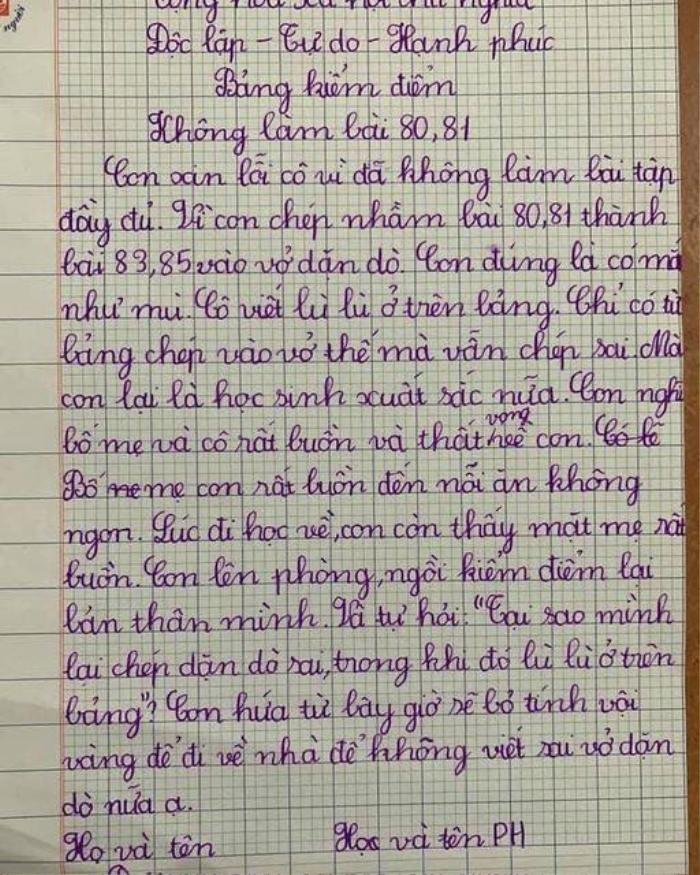 Cộng hòa xã hội chủ nghĩa
Độc lập - Tự do - Hạnh phúc
Bảng kiểm điểm
Không làm bài 80,81
Con xin lỗi cô vì đã không làm bài tập
đầy đủ. Vì con chép nhầm bài 80,81 thành
bài 83,85 vào vở dặn dò. Con đúng là có mắ
như mù. Cô viết lù lù ở trên bảng. Chỉ có từ
bảng chép vào vở thế mà vẫn chép sai. Mà
con lại là học sinh xuất sắc nữa. Con nghĩ
bố mẹ và cô rất buồn và thất vọng về con. Có lẽ
Bố me mẹ con rất buồn đến nỗi ăn không
ngon. Lúc đi học về, con còn thấy mặt mẹ rất
buồn. Con lên phòng, ngồi kiểm điểm lại
bản thân mình. Và tự hỏi: "Tại sao mình
lại chép dặn dò sai, trong khi đó lù lù ở trên
bảng"? Con hứa từ bây giờ sẽ bỏ tính vội
vàng để đi về nhà để không viết sai vở dặn
dò nữa ạ.
Họ và tên Học và tên PH